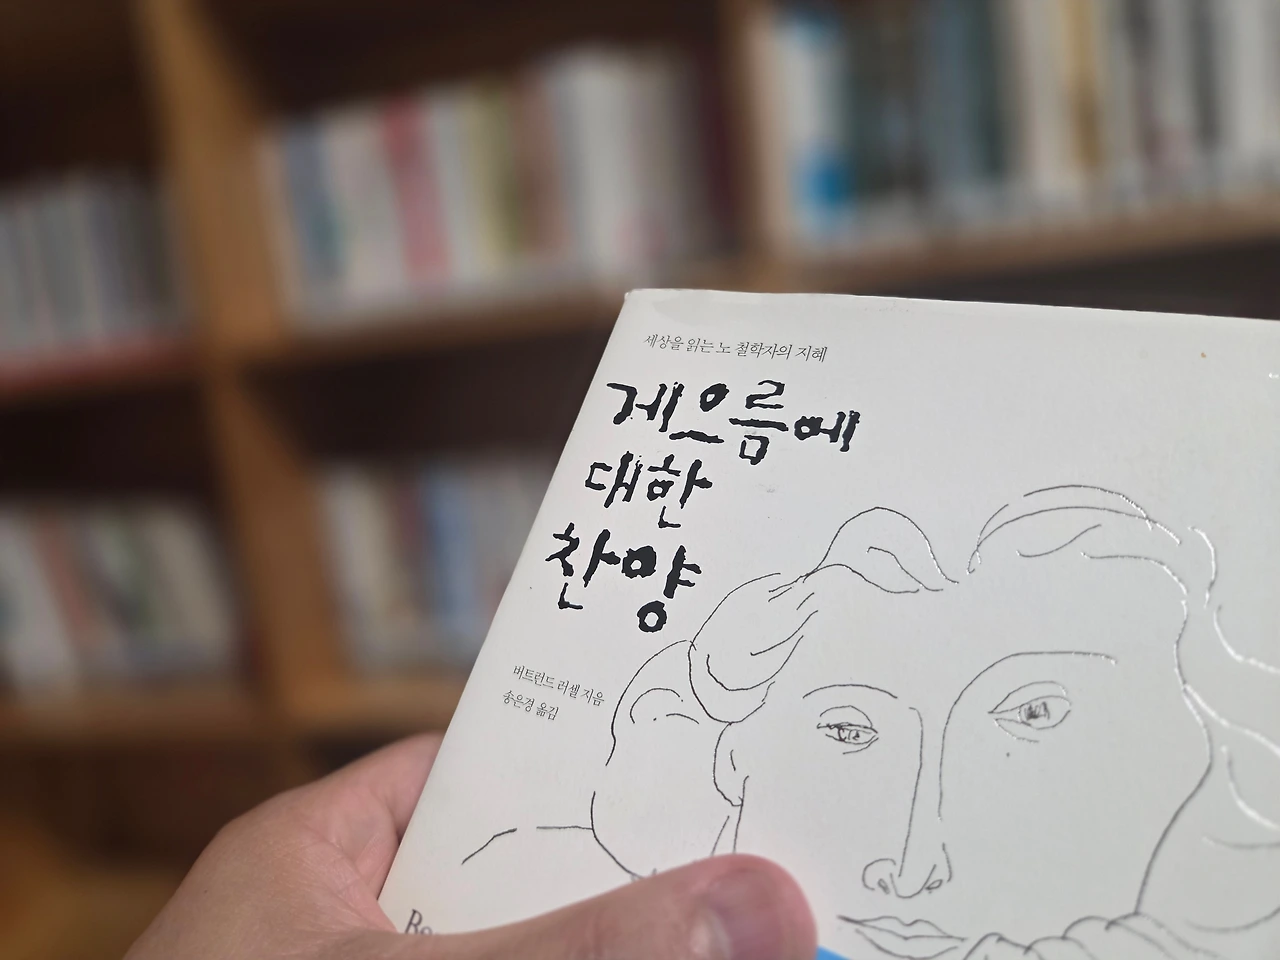 세상을 읽는 노 철학자의 지혜
게으름에
대한
찬양
버트런드 러셀 지음
송은경 옮김